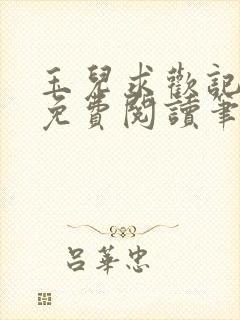 玉兒求歡記
免費閱讀筆
呂華忠